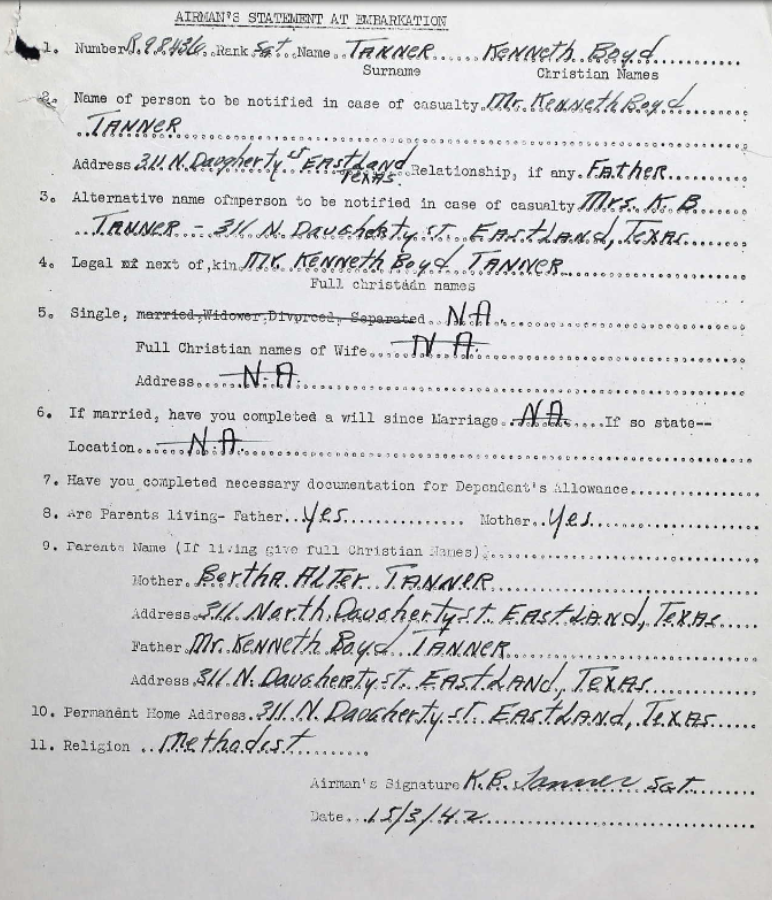 AIRMAN'S STATEMENT AT EMBARKATION
1. Number R.98436 Rank Sgt Name TANNER Kenneth Boyd
Surname Christian Names
2. Name of person to be notified in case of casualty Mr. Kenneth Boyd
TANNER
Address 311 N. Daugherty St EASTLAND TEXAS. Relationship, if any. FATHER
3. Alternative name ofmperson to be notified in case of casualty Mrs. K. B.
TANNER - 311 N. Daugherty ST. EASTLAND, TEXAS
4. Legal next of,kin Mr. Kenneth Boyd TANNER
Full christáán names
5. Single, married,Widower,Divorced, Separated. N.A.
Full Christian names of Wife N A.
Address N.A.
6. If married, have you completed a will since Marriage N.A. If so state--
Location N.A.
7. Have you completed necessary documentation for Dependent's Allowance
8. Are Parents living- Father Yes Mother Yes
9. Parents Name (If living give full Christian Names)
Mother. Bertha ALTER TANNER
Address 311 North Daugherty ST. EASTLAND, TEXAS
Father Mr. Kenneth Boyd TANNER
Address 311 N. Daugherty ST. EASTLAND, TEXAS
10. Permanent Home Address. 311 N. Daugherty ST. EASTLAND, TEXAS
11. Religion Methodist
Airman's Signature K.B. Tanner Sgt.
Date 15/3/42